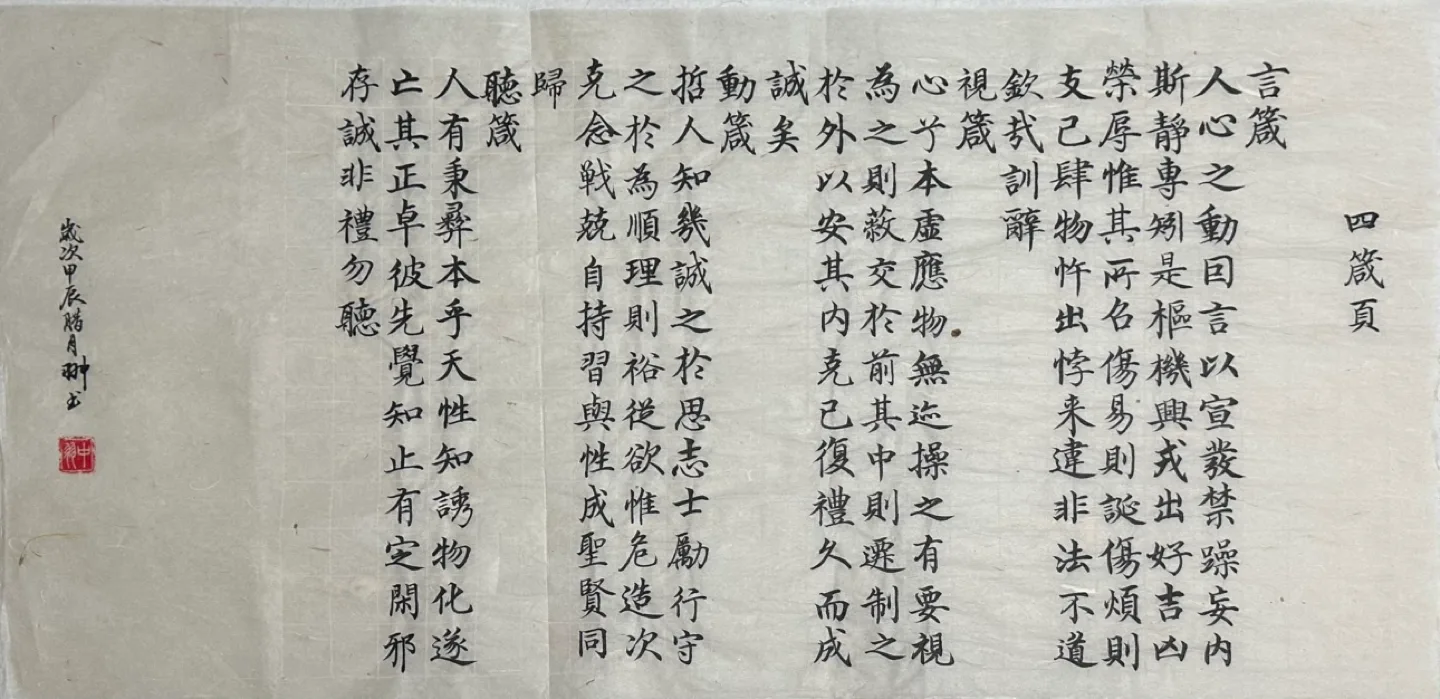 四箴頁
言箴
人心之動因言以宣發禁躁妄内
斯靜專矧是樞機興戎出好吉凶
榮辱惟其所召傷易則誕傷煩則
支己肆物忤出悖来違非法不道
欽哉訓辭
視箴
心兮本虛應物無迹操之有要視
為之則蔽交於前其中則遷制之
於外以安其内克己復禮久而成
誠矣
動箴
哲人知幾誠之於思志士勵行守
之於為順理則裕從欲惟危造次
克念戦兢自持習與性成聖賢同
歸
聽箴
人有秉彝本乎天性知誘物化遂
亡其正卓彼先覺知止有定閑邪
存誠非禮勿聽
歲次甲辰腊月翀书